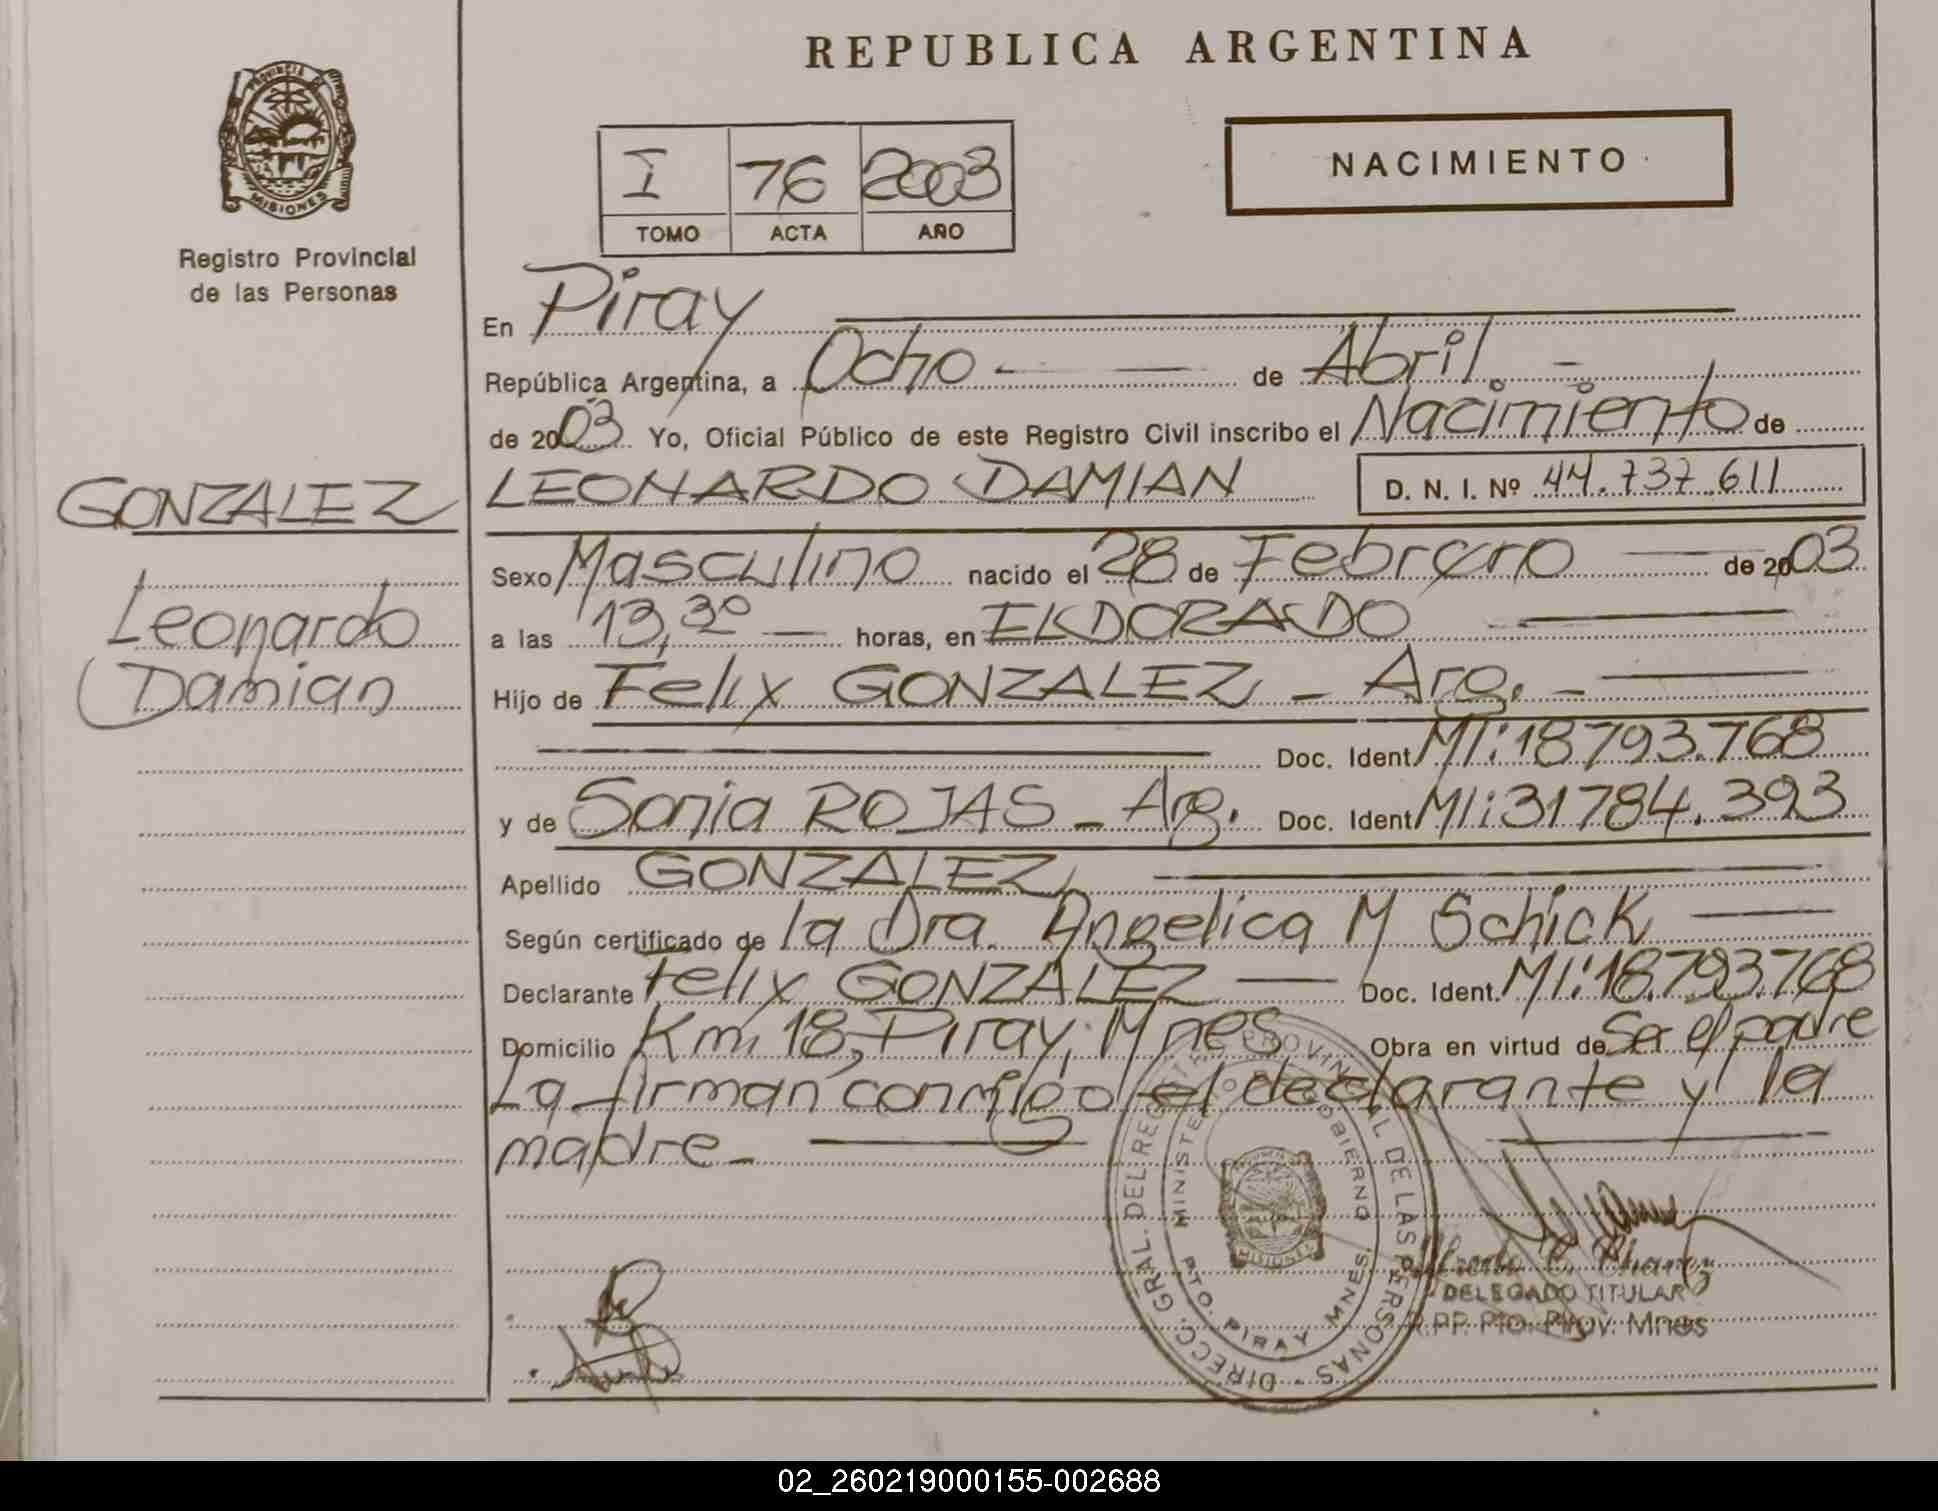 REPUBLICA ARGENTINA
PROVINCIA DE
MISIONES
Registro Provincial
de las Personas
I 76 2003
TOMO ACTA AÑO
NACIMIENTO
En Piray
República Argentina, a Ocho de Abril.
de 2003 Yo, Oficial Público de este Registro Civil inscribo el Nacimiento de
GONZALEZ
LEONARDO DAMIAN D. N. I. Nº 44.737.611
Leonardo
Damian
Sexo Masculino nacido el 28 de Febrero de 2003
a las 13,30 horas, en ELDORADO
Hijo de Felix GONZALEZ - Arg. -
Doc. Ident MI: 18793.768
y de Sonia ROJAS - Arg. Doc. Ident MI: 31784.393
Apellido GONZALEZ
Según certificado de la Dra. Angelica M Schick
Declarante Felix GONZALEZ Doc. Ident. MI: 18.793.768
Domicilio Km, 18, Piray, Mnes Obra en virtud de Ser el padre
La firman conmigo el declarante y la
madre -
DIRECC. GRAL. DEL REGISTRO PROVINCIAL DE LAS PERSONAS
MINISTERIO DE GOBIERNO
PTO. PIRAY MNES.
MISIONES
DELEGADO TITULAR
R.PP. Pto. Piray. Mnes
02_260219000155-002688